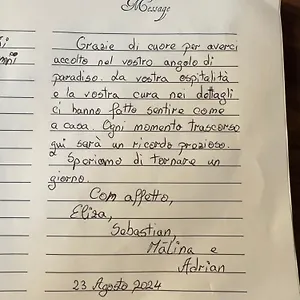 Message
Grazie di cuore per averci
accolto nel vostro angolo di
paradiso. La vostra ospitalità
e la vostra cura nei dettagli
ci hanno fatto sentire come
a casa. Ogni momento trascorso
qui sarà un ricordo prezioso.
Speriamo di tornare un
giorno.
Com affetto,
Eliza,
Sebastian,
Mălina e
Adrian
23 Agosto 2024